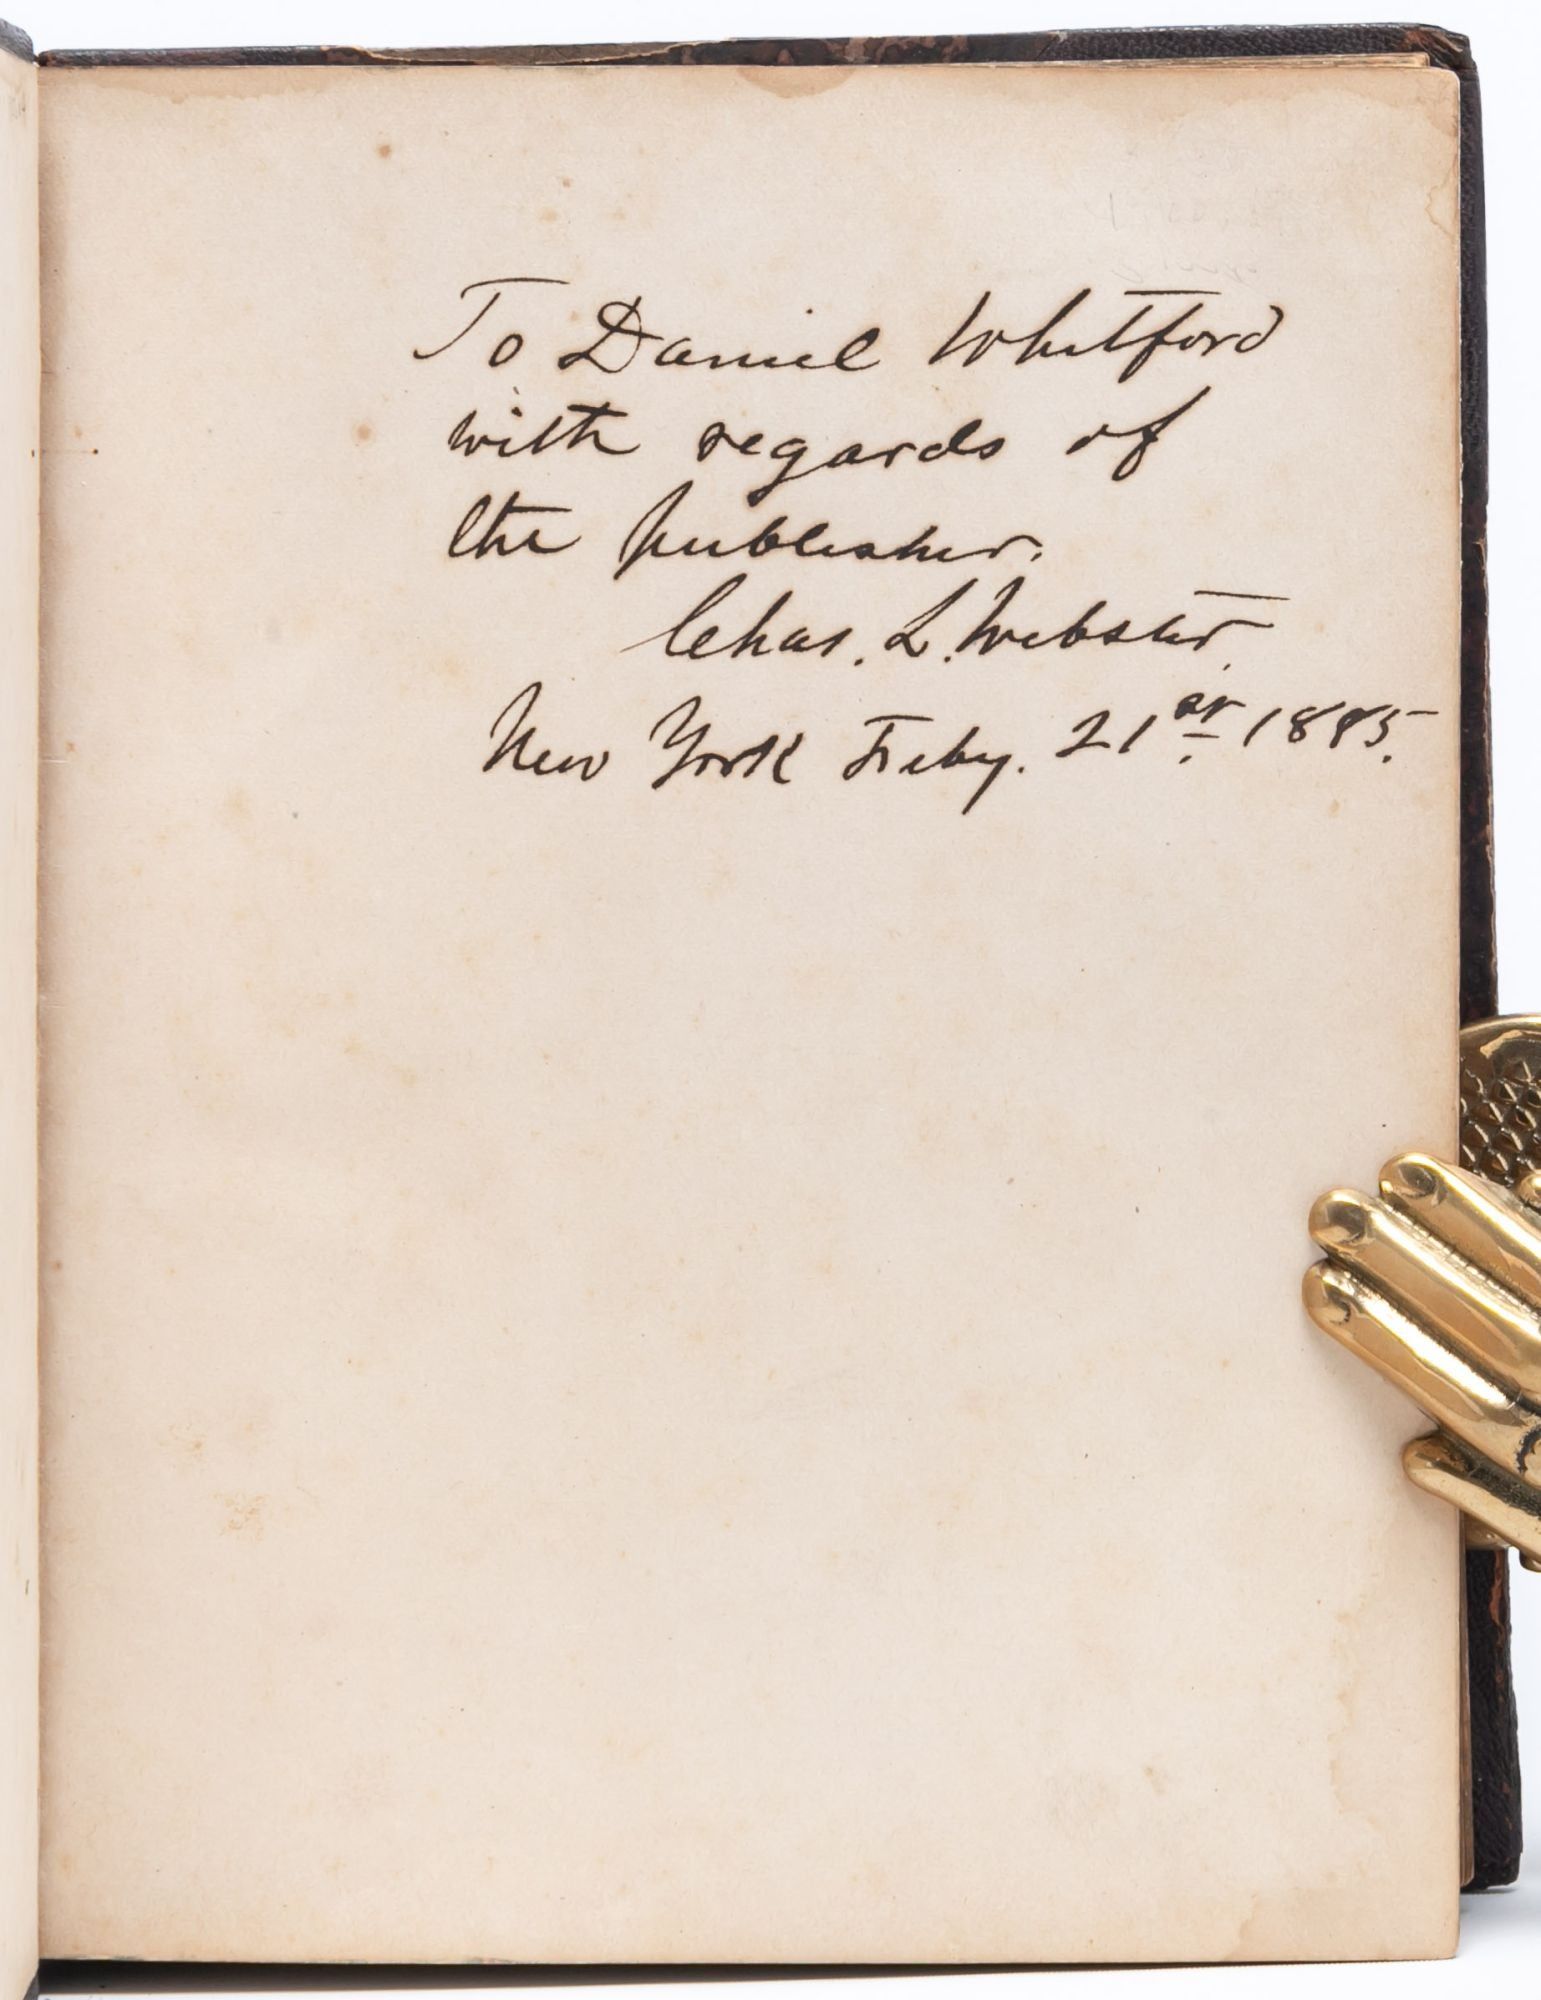 To Daniel Whitford
with regards of
the publisher.
Chas. L. Webster.
New York Feby. 21st 1885.